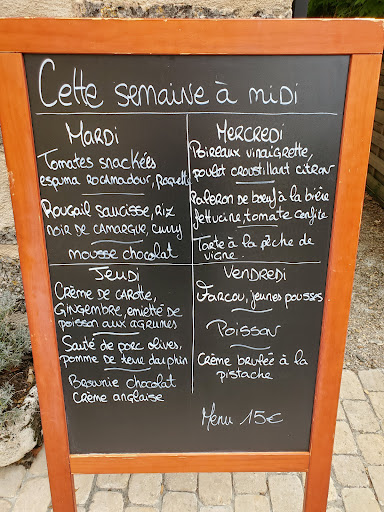 Cette semaine à midi
Mardi
Tomates snackées
espuma rocamadour, Roquette
Rougail saucisse, riz
noir de Camargue, curry
mousse chocolat
Mercredi
Poireaux vinaigrette,
poulet croustillant citron
Paleron de boeuf à la bière
fettucine, tomate confite
Tarte à la pêche de
vigne.
Jeudi
Crème de carotte,
Gingembre, emietté de
poisson aux agrumes
Sauté de porc olives,
pomme de terre dauphin
Brownie chocolat
Crème anglaise
Vendredi
Farcou, jeunes pousses
Poisson
Crème brulée à la
pistache
Menu 15€